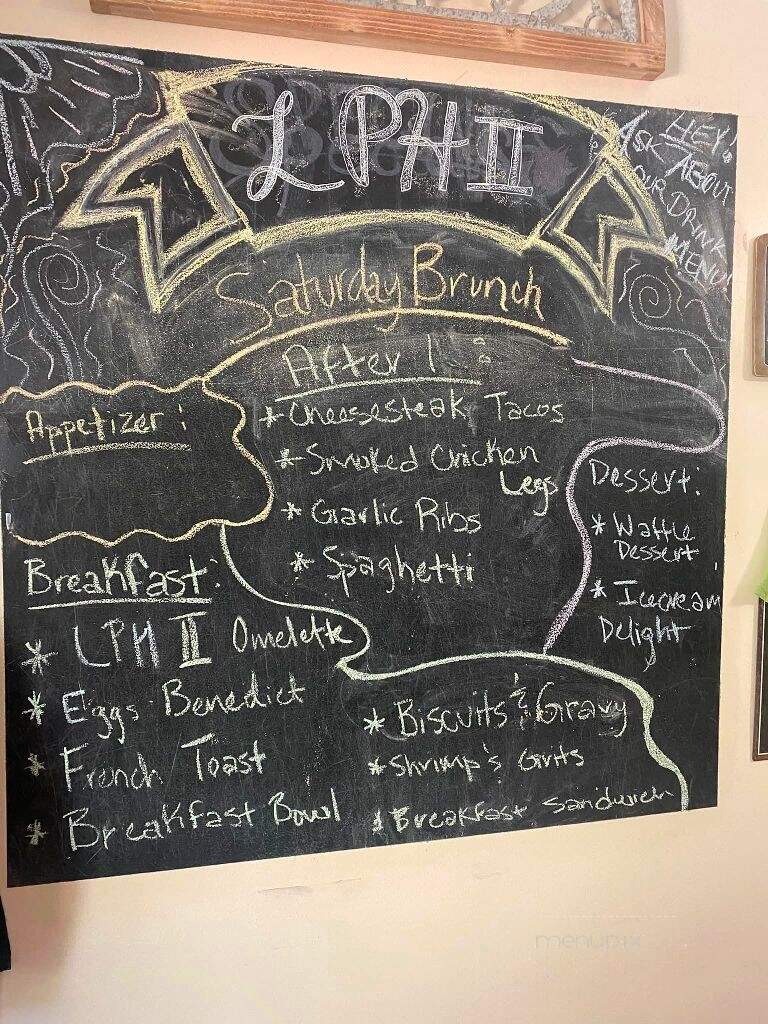 LPH II
HEY!
ASK ABOUT
OUR DRINK
MENU!
Saturday Brunch
After 1:
* Cheesesteak Tacos
* Smoked Chicken
Legs
* Garlic Ribs
* Spaghetti
Appetizer:
Dessert:
* Waffle
Dessert
* Icecream
Delight
Breakfast:
* LPH II Omelette
* Eggs Benedict
* French Toast
* Breakfast Bowl
* Biscuits & Gravy
* Shrimp & Grits
* Breakfast Sandwich
menupix